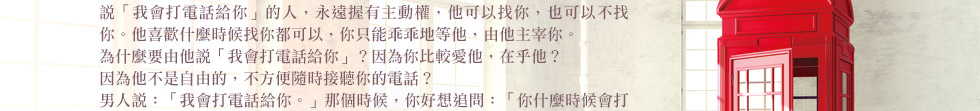 說「我會打電話給你」的人，永遠握有主動權，他可以找你，也可以不找
你。他喜歡什麼時候找你都可以，你只能乖乖地等他，由他主宰你。
為什麼要由他說「我會打電話給你」？因為你比較愛他，在乎他？
因為他不是自由的，不方便隨時接聽你的電話？
男人說：「我會打電話給你。」那個時候，你好想追問：「你什麼時候會打